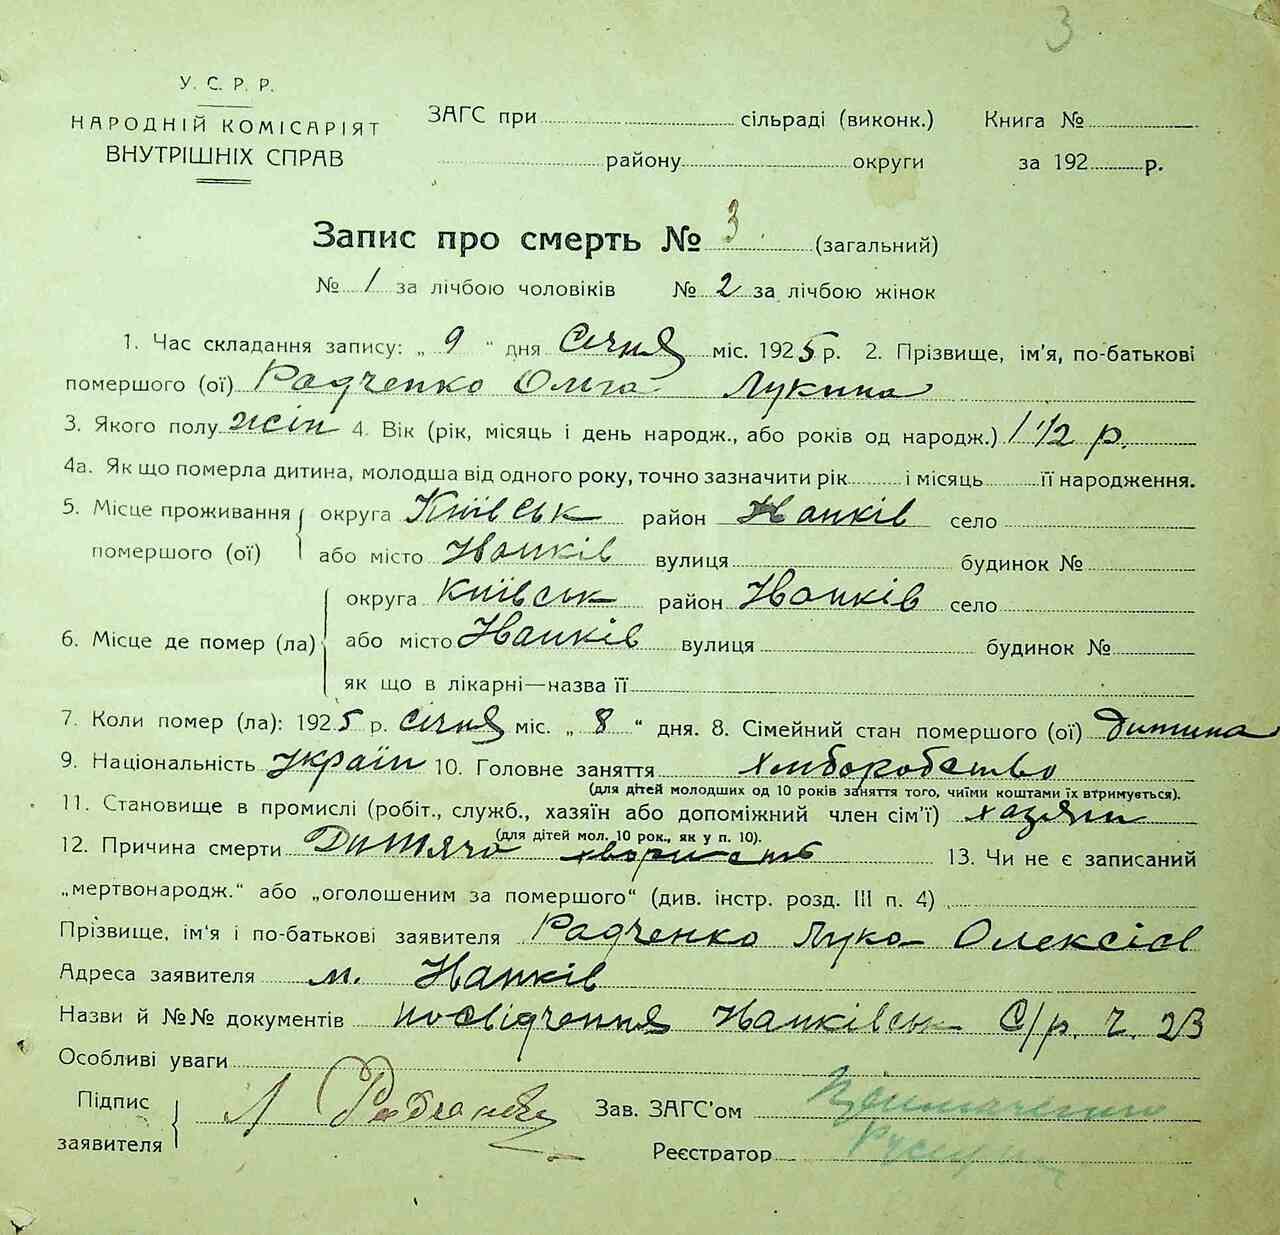 3
У. С. Р. Р.
НАРОДНІЙ КОМІСАРІЯТ
ВНУТРІШНІХ СПРАВ
ЗАГС при сільраді (виконк.)
району округи
Книга №
за 192 р.
Запис про смерть № 3. (загальний)
№ 1 за лічбою чоловіків № 2 за лічбою жінок
1. Час складання запису: „ 9 “ дня Січня міс. 1925 р. 2. Прізвище, ім'я, по-батькові
помершого (ої) Радченко Ольга Лукина
3. Якого полу жін 4. Вік (рік, місяць і день народж., або років од народж.) 1 1/2 р.
4а. Як що померла дитина, молодша від одного року, точно зазначити рік і місяць її народження.
5. Місце проживання округа Київськ район село
помершого (ої) або місто вулиця будинок №
округа Київськ район село
6. Місце де помер (ла) або місто вулиця будинок №
як що в лікарні—назва її
7. Коли помер (ла): 1925 р. січня міс. „ 8 “ дня. 8. Сімейний стан помершого (ої) дитина
9. Національність україн 10. Головне заняття хліборобство
(для дітей молодших од 10 років заняття того, чиїми коштами їх втримується).
11. Становище в промислі (робіт., служб., хазяїн або допоміжний член сім'ї) хазяїн
(для дітей мол. 10 рок., як у п. 10).
12. Причина смерти Дитяча 13. Чи не є записаний
„мертвонародж.“ або „оголошеним за помершого“ (див. інстр. розд. III п. 4)
Прізвище, ім'я і по-батькові заявителя Радченко Лука Олексієв
Адреса заявителя м.
Назви й №№ документів посвідчення С/р. ч. 23
Особливі уваги
Підпис
заявителя
Л Радченко
Зав. ЗАГС'ом
Реєстратор